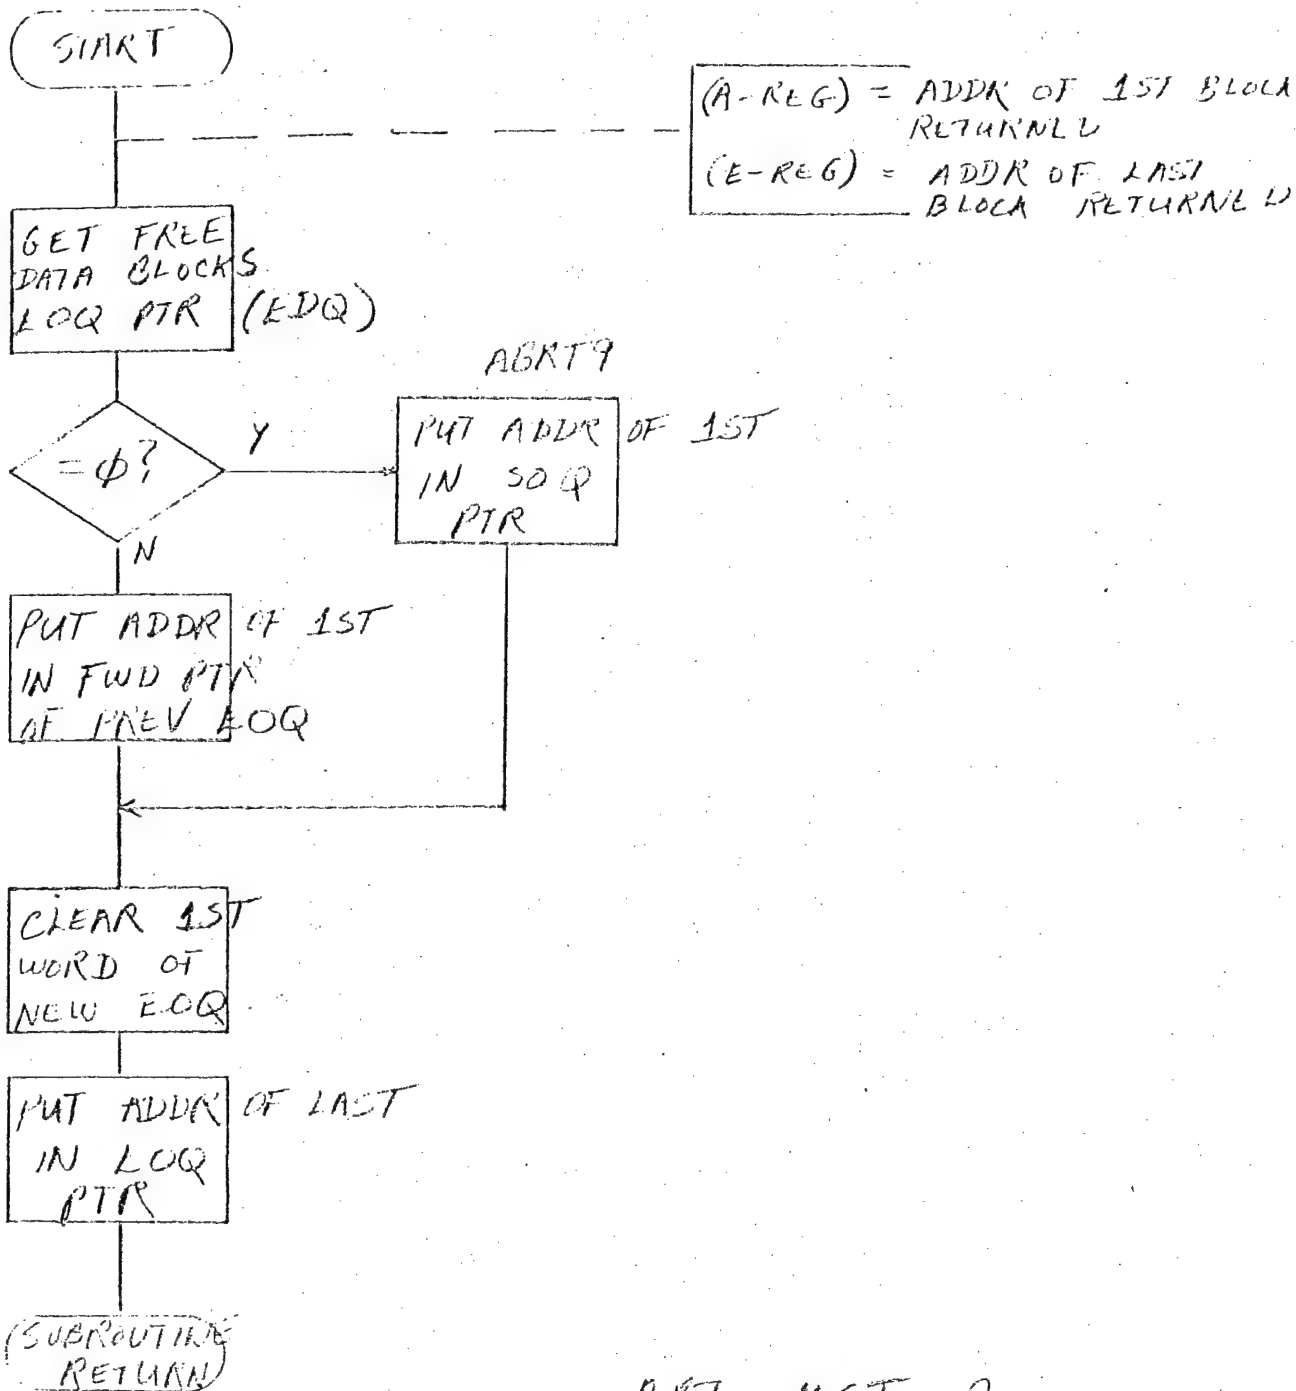 START
(A-REG) = ADDR OF 1ST BLOCK
RETURNED
(E-REG) = ADDR OF LAST
BLOCK RETURNED
GET FREE
DATA BLOCKS
EOQ PTR (EDQ)
ABRT9
=φ?
Y
PUT ADDR OF 1ST
IN SOQ
PTR
N
PUT ADDR OF 1ST
IN FWD PTR
OF PREV EOQ
CLEAR 1ST
WORD OF
NEW EOQ
PUT ADDR OF LAST
IN EOQ
PTR
(SUBROUTINE
RETURN)